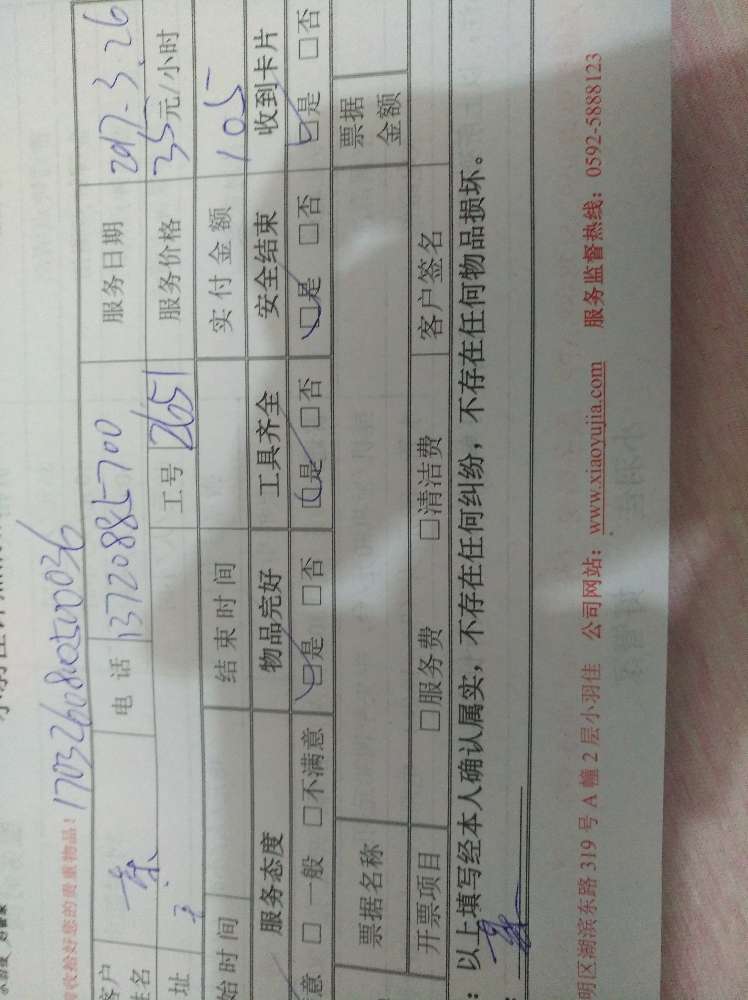 收拾好您的贵重物品！ 17032608105200036
客户 电话 13720885700 服务日期 2017-3.26
姓名
址 工号 2651 服务价格 35元/小时
始时间 结束时间 实付金额 105
服务态度 物品完好 工具齐全 安全结束 收到卡片
意 □ 一般 □不满意 □是 □否 □是 □否 □是 □否 □是 □否
票据名称 票据
金额
开票项目 □服务费 □清洁费 客户签名
：以上填写经本人确认属实，不存在任何纠纷，不存在任何物品损坏。
明区湖滨东路 319 号 A 幢 2 层小羽佳 公司网站：www.xiaoyujia.com 服务监督热线：0592-5888123